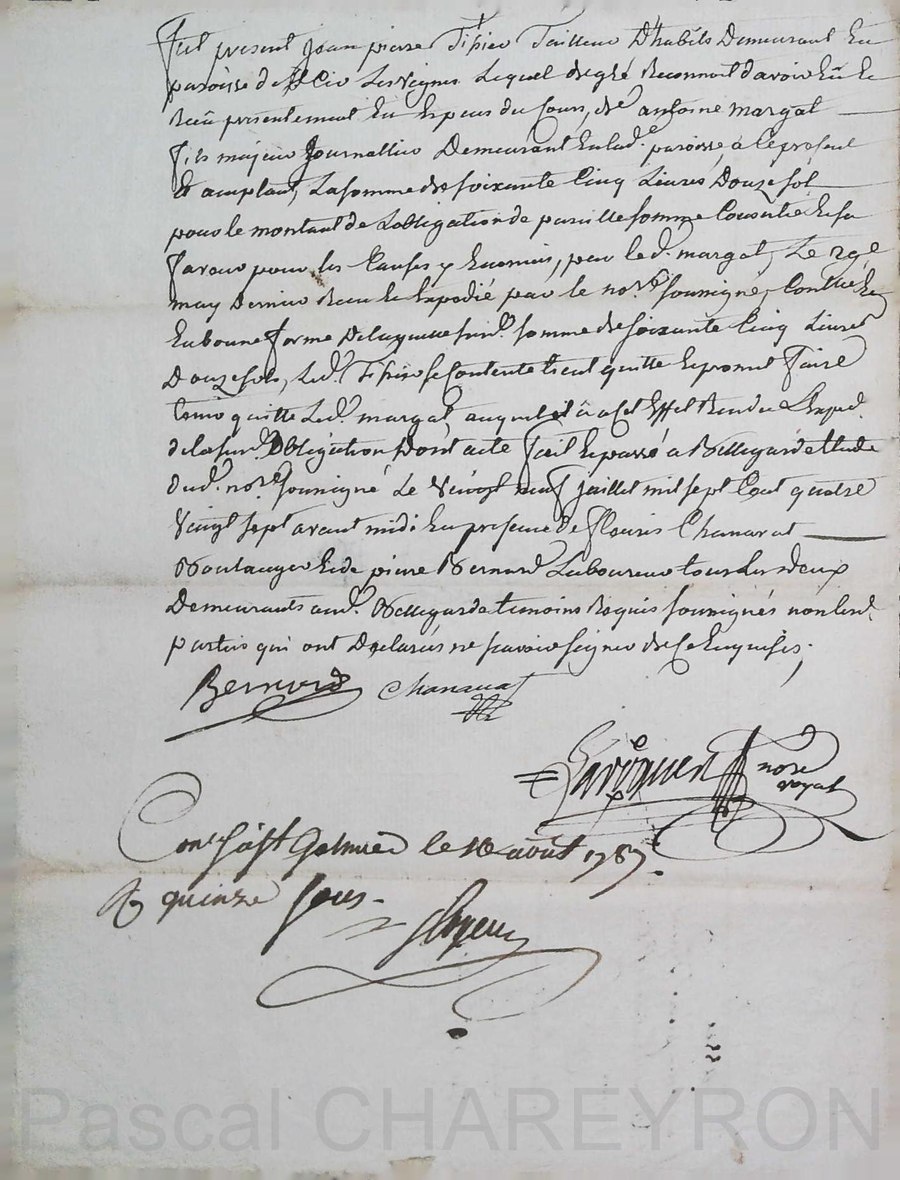 fut present Jean pierre Tissier Tailleur D'habits Demeurant En
paroisse de St Cir Les vignes Lequel de gré Reconnoit d'avoir Eû Et
Receu presentement En Especes du Cours, de antoine margat
fils majeur Journallier Demeurant En lad.e paroisse, à Ce present
Et acceptant, La somme de soixante Cinq Livres Douze sol
pour le montant de Lobligation de pareille somme Consentie En sa
faveur pour les Causes y Enoncées, par led.t margat, Le
may Dernier Receu Et Expedié par le no.re soussigné, Conllée
En bonne forme De laquelle sud.te somme de soixante Cinq Livres
Douze sols, Led.t Tissier se Contente tient quitte Et promet faire
tenir quitte Led.t margat, auquel il a a Cet Effet Rendu L'Exped.
de la sud.te Obligation Dont acte fait Et passé a Bellegarde Etude
dud.t no.re soussigné Le Vingt neuf juillet mil sept Cent quatre
Vingt sept avant midi En presence de fleuris Chanavat
Boulanger Et de pierre Bernard Laboureur tous Les Deux
Demeurants aud.t Bellegarde temoins Requis soussignés non lesd.
parties qui ont Declarés ne savoir signer de Ce Enquises;
Bernard Chanavat
nore
royal
Con.té à St Galmier le 10 août 1787.
R quinze sous.
Pascal CHAREYRON